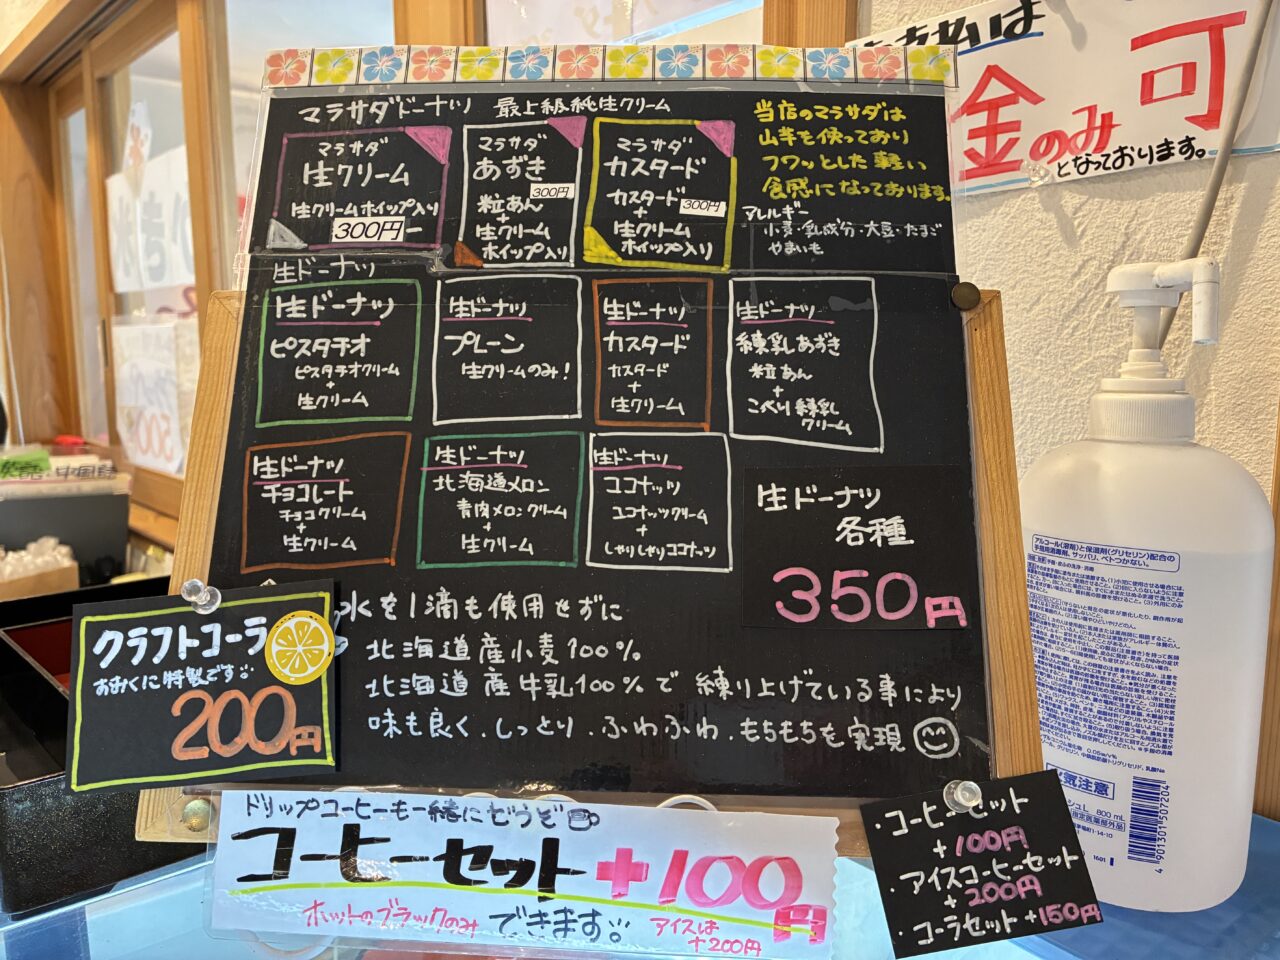 マラサダドーナツ 最上級純生クリーム
マラサダ
生クリーム
生クリームホイップ入り
300円
マラサダ
あずき
300円
粒あん
+
生クリーム
ホイップ入り
マラサダ
カスタード
カスタード
300円
+
生クリーム
ホイップ入り
当店のマラサダは
山芋を使っており
フワッとした軽い
食感になっております。
アレルギー
小麦・乳成分・大豆・たまご
やまいも
生ドーナツ
生ドーナツ
ピスタチオ
ピスタチオクリーム
+
生クリーム
生ドーナツ
プレーン
生クリームのみ!
生ドーナツ
カスタード
カスタード
+
生クリーム
生ドーナツ
練乳あずき
粒あん
+
こべり練乳
クリーム
生ドーナツ
チョコレート
チョコクリーム
+
生クリーム
生ドーナツ
北海道メロン
青肉メロンクリーム
+
生クリーム
生ドーナツ
ココナッツ
ココナッツクリーム
+
しゃりしゃりココナッツ
生ドーナツ
各種
350円
水を1滴も使用せずに
北海道産小麦100%。
北海道産牛乳100%で練り上げている事により
味も良く、しっとり、ふわふわ、もちもちを実現
クラフトコーラ
お肉に特製です
200円
ドリップコーヒーも一緒にどうぞ
コーヒーセット+100円
ホットのブラックのみ できます
アイスは
+200円
・コーヒーセット
+100円
・アイスコーヒーセット
+200円
・コーラセット+150円
お支払いは
金のみ可
となっております。
アルコール(溶剤)と保湿剤(グリセリン)配合の
手指用消毒剤。サッパリ、ベトつかない。
気注意
800 mL
指定医薬部外品
4901301507204